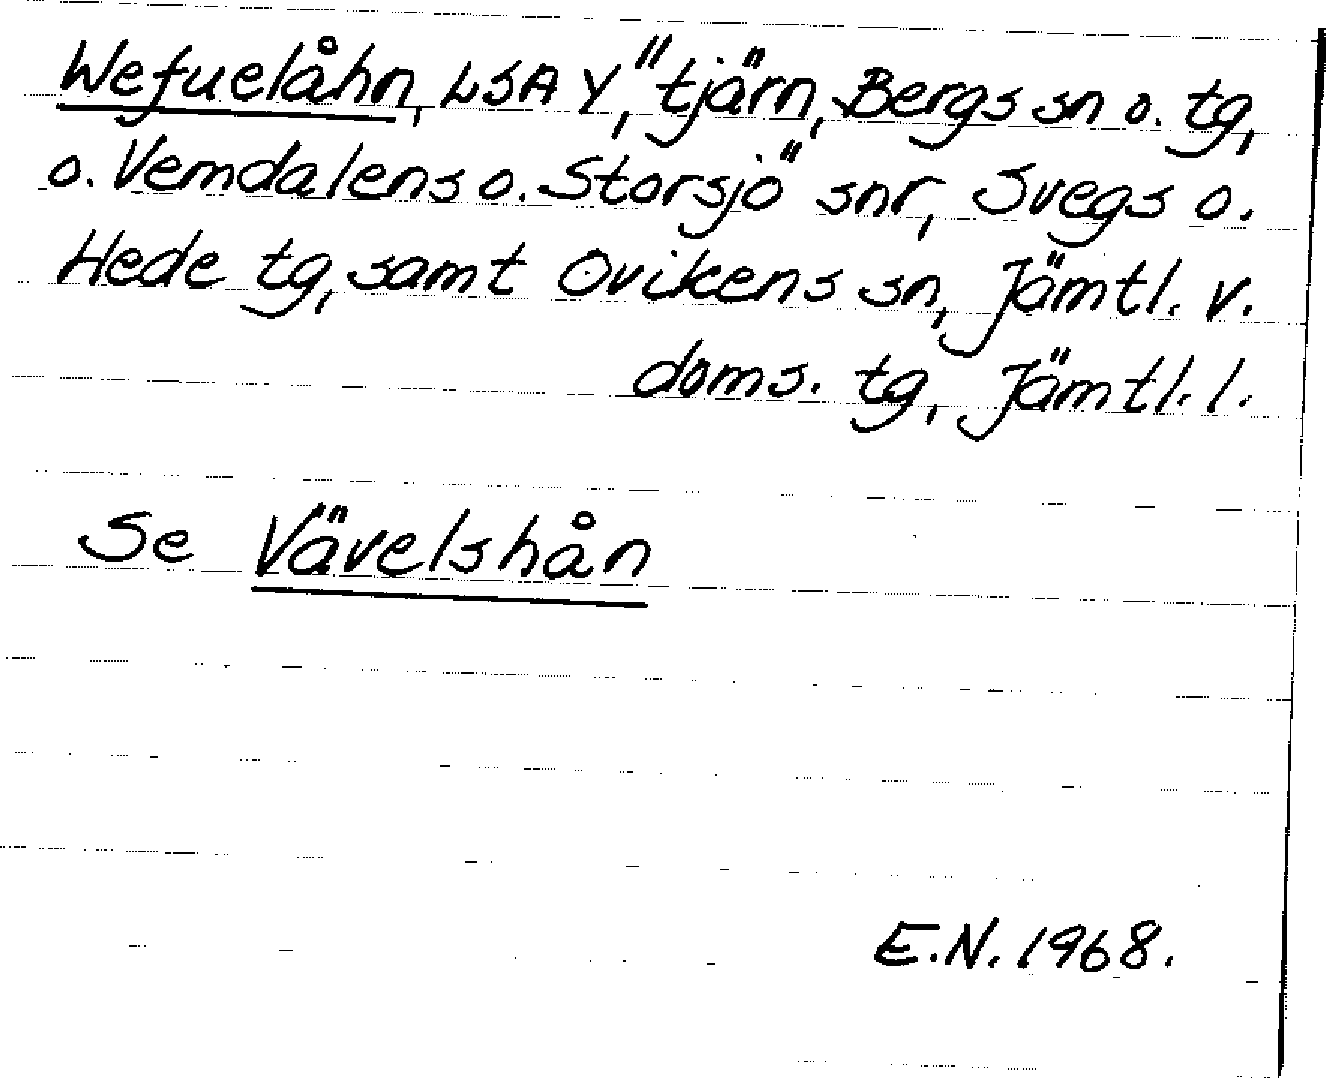 Wefuelåhn, LSA Y, "tjärn, Bergs sn o. tg,
o. Vemdalens o. Storsjö snr, Svegs o.
Hede tg, samt Ovikens sn, Jämtl. v.
doms. tg, Jämtl. l.
Se Vävelshån
E.N. 1968.